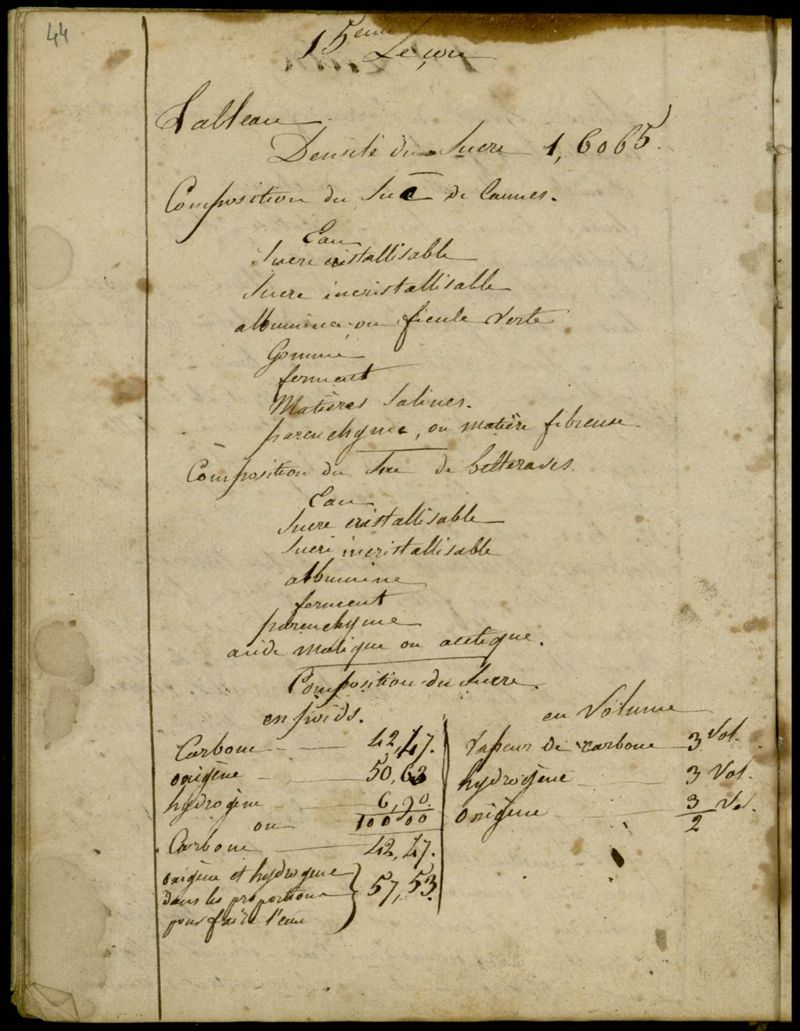 44
15eme Leçon
Tableau
Densité du Sucre 1,6065.
Composition du Suc de Cannes.
Eau
Sucre cristallisable
Sucre incristallisable
albumine ou fécule verte
Gomme
ferment
Matières Salines.
parenchyme, ou matière fibreuse
Composition du Suc de betteraves.
Eau
Sucre cristallisable
Sucre incristallisable
albumine
ferment
parenchyme
acide malique ou acétique.
Composition du Sucre.
en poids.
Carbone 42,47.
oxigène 50,63
hydrogène 6,90
ou 100 00
Carbone 42,47.
oxigène et hydrogène
dans les proportions
pour faire l'eau } 57,53.
en Volume
Vapeur de carbone 3 Vol.
hydrogène 3 Vol.
oxigène 3/2 Vol.